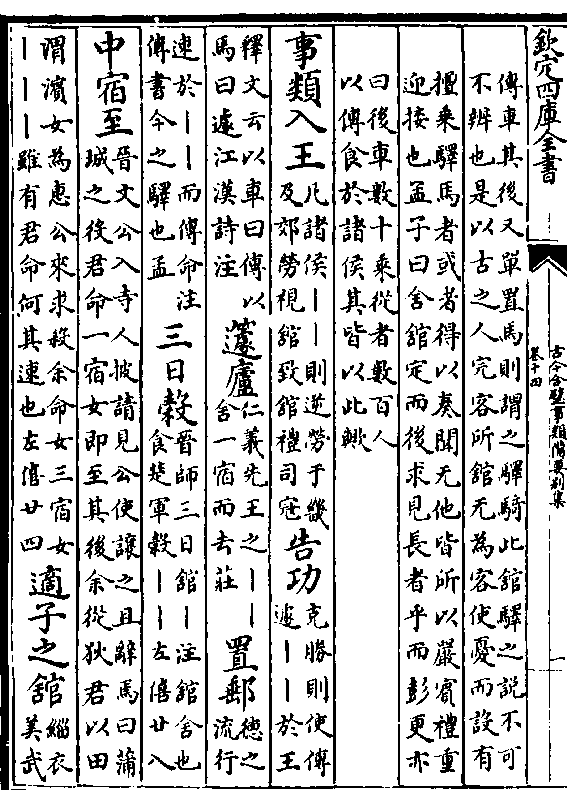 欽定四庫全書
古今合璧事類備要别集
卷十四
傳車其後又單置馬則謂之驛騎此舘驛之説不可
不辨也是以古之人完客所舘无為客使憂而設有
擅乘驛馬者或者得以奏聞无他皆所以嚴賓禮重
迎接也孟子曰舍舘定而後求見長者乎而彭更亦
曰後車數十乘從者數百人
以傳食於諸侯其皆以此歟
事類入王凡諸侯丨丨則逆勞于畿
及郊勞視舘致舘禮司寇告功克勝則使傳
遽丨丨於王
釋文云以車曰傳以
馬曰遽江漢詩注蘧廬仁義先王之丨丨
舍一宿而去莊置郵德之
流行
速於丨丨而傳命注
傳書今之驛也孟三日糓晉師三日舘丨注舘舍也
食楚軍糓丨丨左僖廿八
中宿至晉文公入寺人披請見公使讓之且辭焉曰蒲
城之役君命一宿女即至其後余從狄君以田
渭濱女為惠公來求殺余命女三宿女
丨丨丨雖有君命何其速也左僖廿四適子之舘緇衣
美武